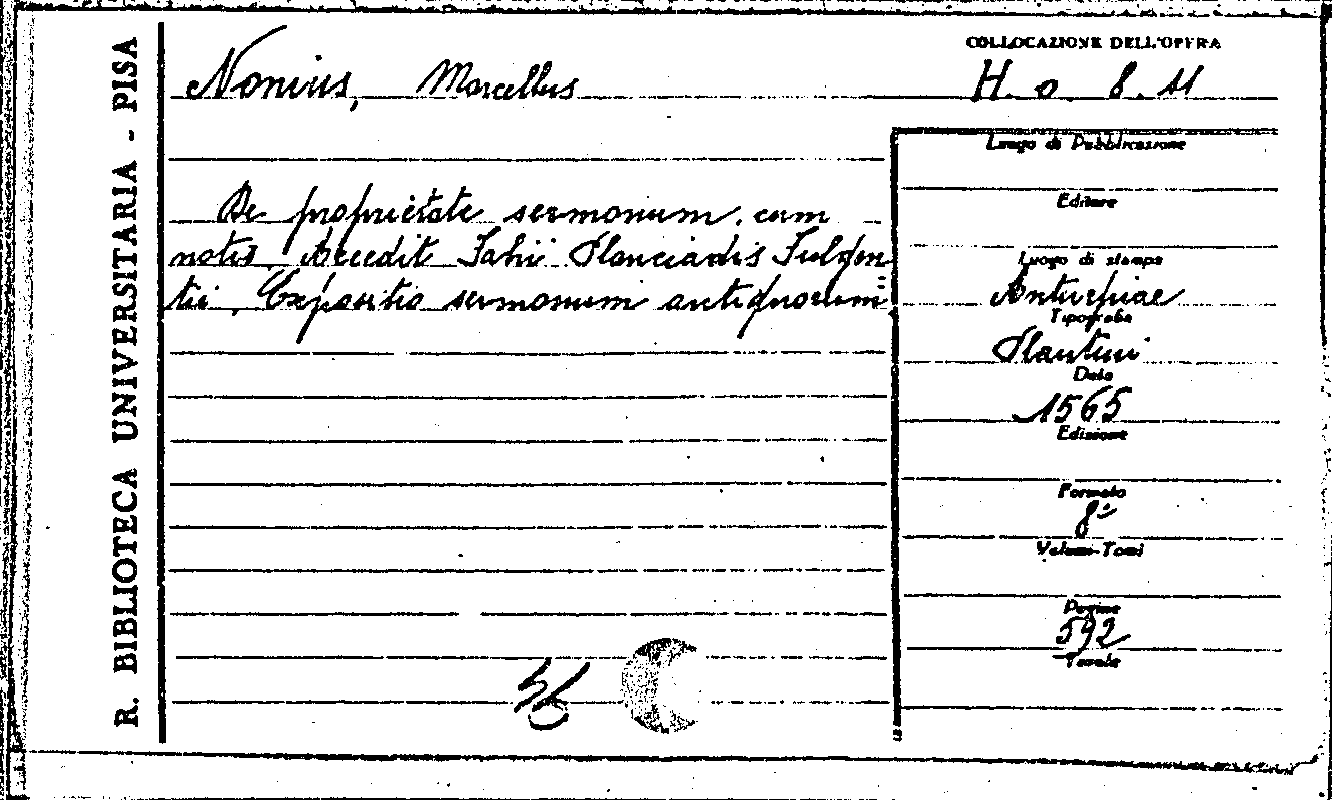 R. BIBLIOTECA UNIVERSITARIA - PISA
Nonius, Marcellus
COLLOCAZIONE DELL'OPERA
H. o. 8. 11
De proprietate sermonum, cum
notis. Accedit Fabii Planciadis Fulgen
tii, Expositio sermonum antiquorum
Luogo di Pubblicazione
Editore
Luogo di stampa
Antuerpiae
Tipografia
Plantini
Data
1565
Edizione
Formato
8º
Volumi-Tomi
Pagine
592
Tavole